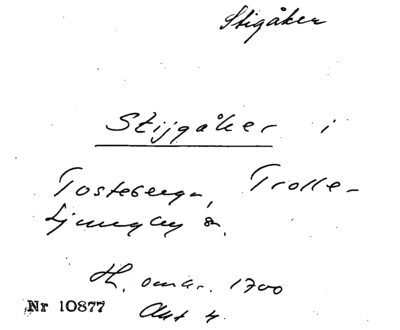 Stigåker
Stijgåker i
Tosteberga, Trolle-
Ljungby s.
H. omår. 1700
Nr 10877 Akt 4.